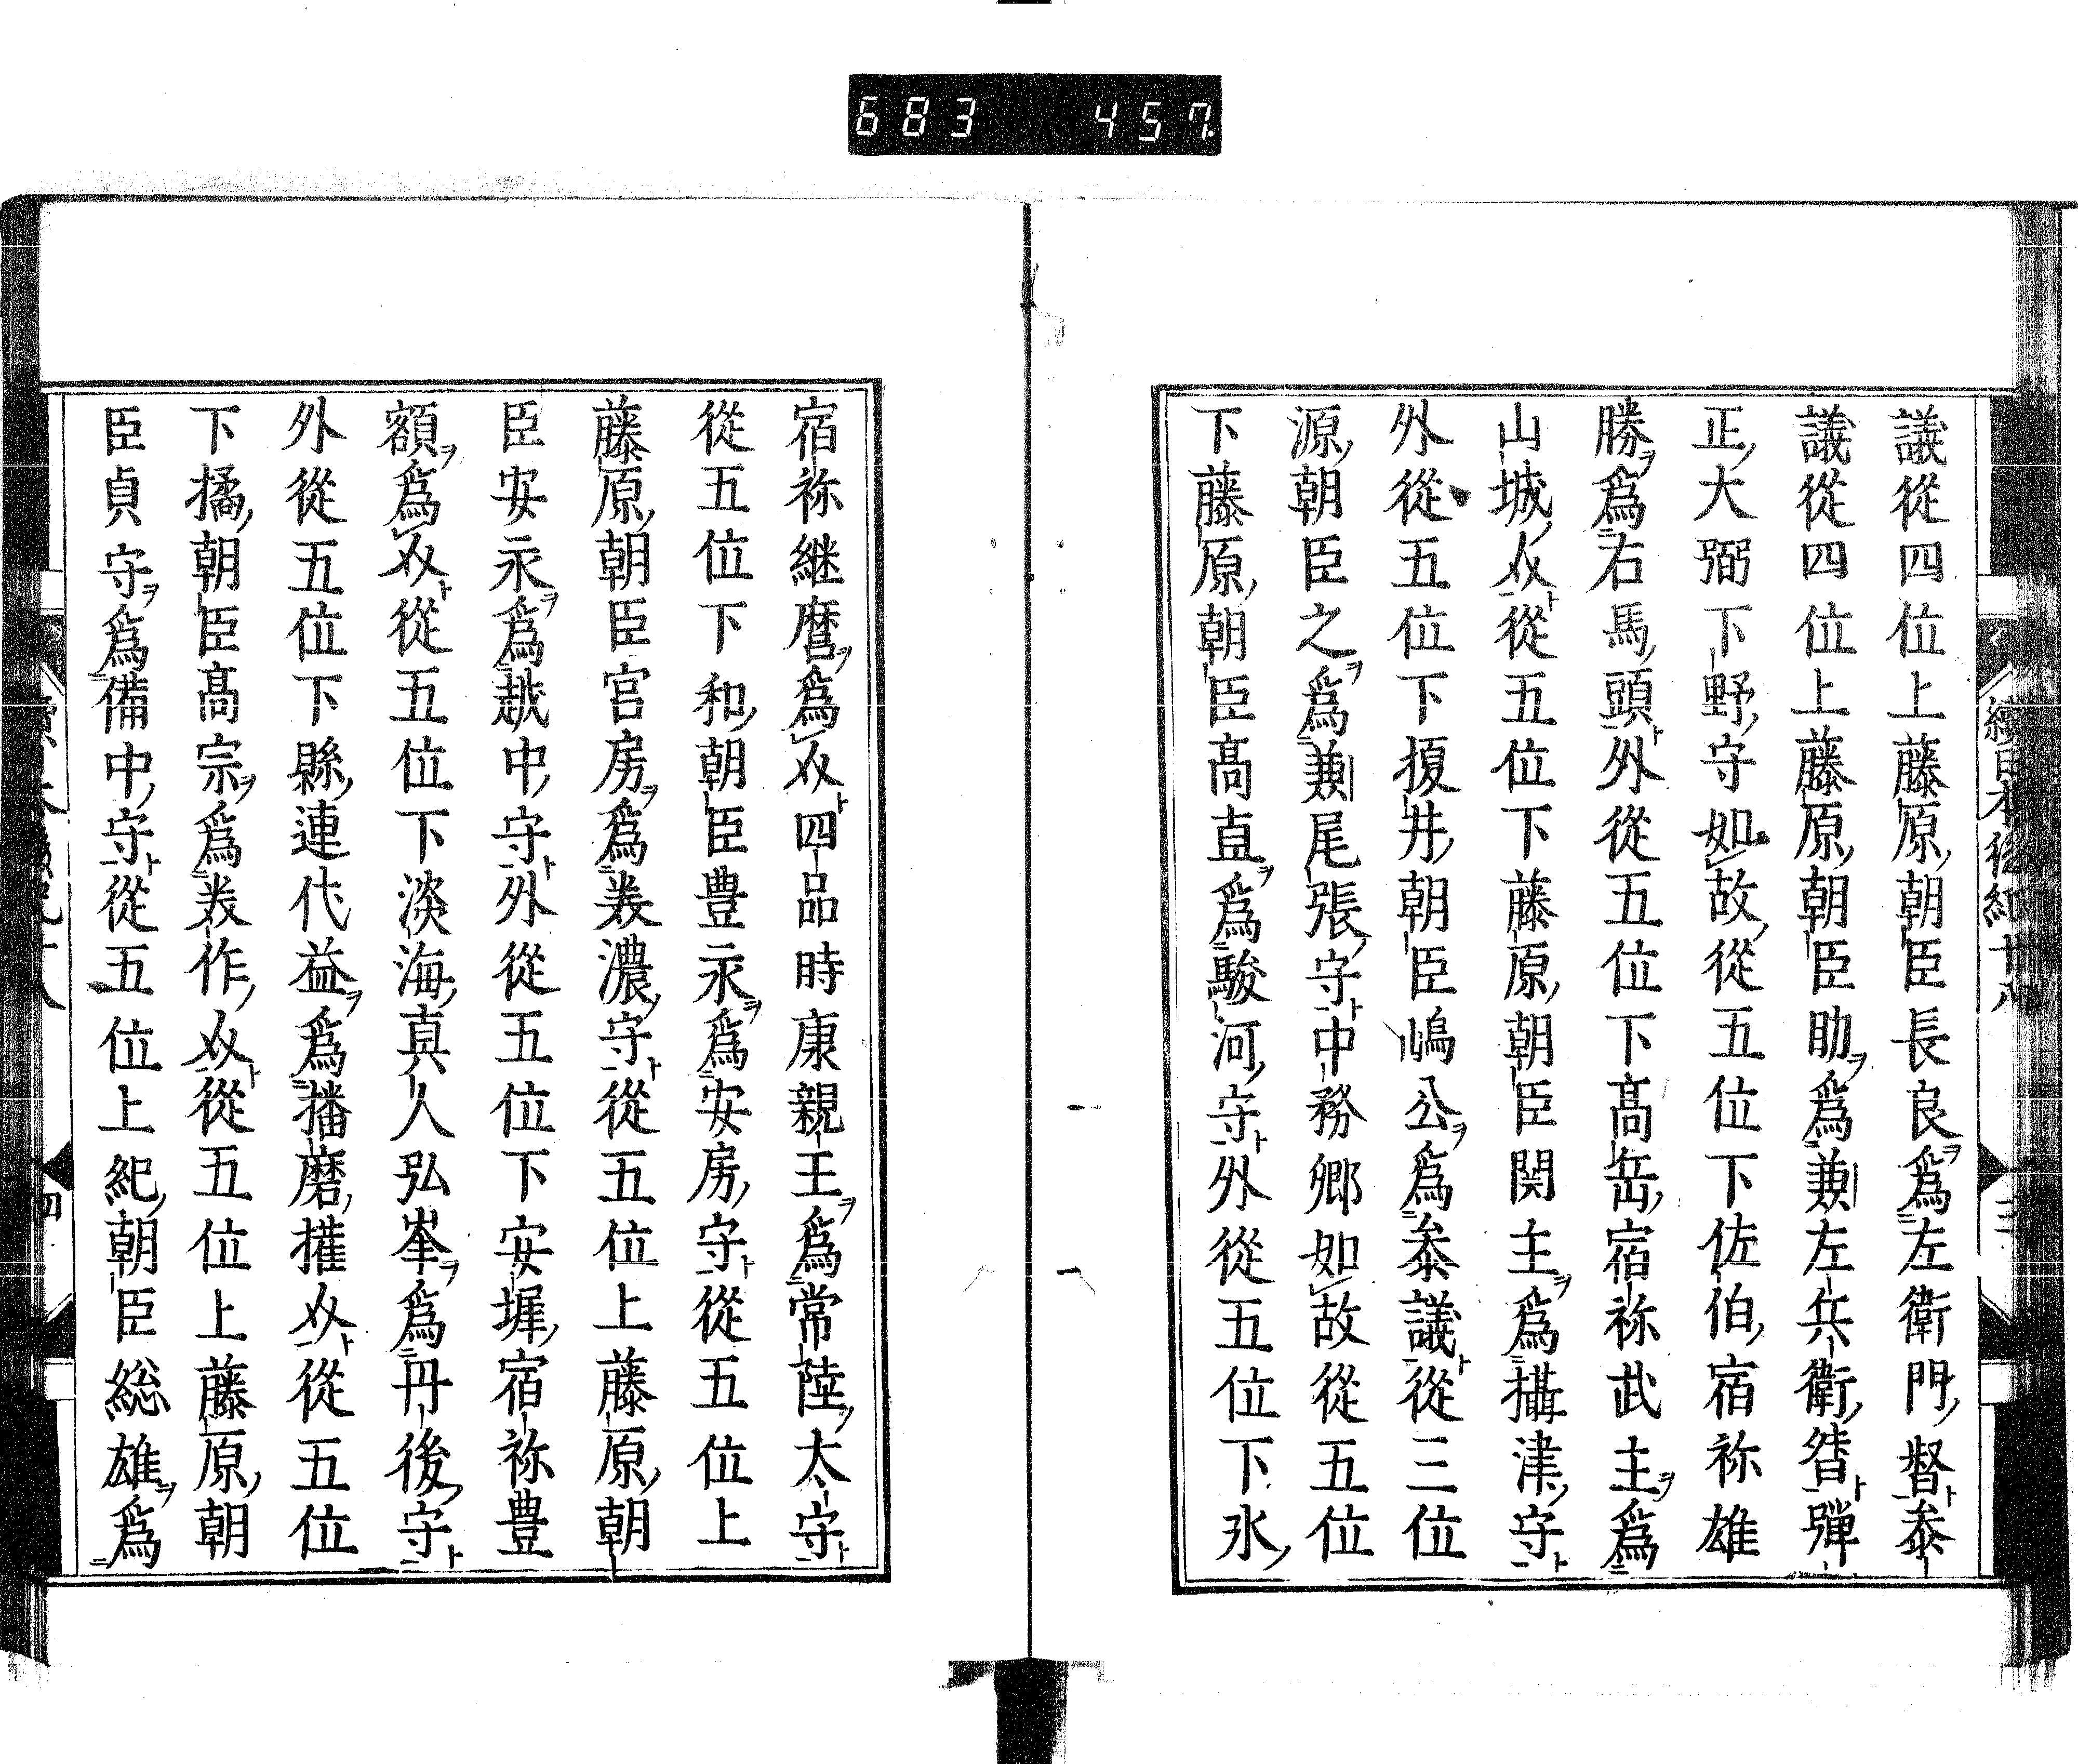 683 457
續日本後紀十八
三
議從四位上藤原朝臣長良爲左衛門督叅
議從四位上藤原朝臣助爲兼左兵衛督彈
正大弼下野守如故從五位下佐伯宿祢雄
勝爲右馬頭外從五位下髙岳宿祢武主爲
山城介從五位下藤原朝臣関主爲攝津守
外從五位下榎井朝臣嶋公爲叅議從三位
源朝臣之爲兼尾張守中務卿如故從五位
下藤原朝臣髙直爲駿河守外從五位下氷
宿祢継麿爲介四品時康親王爲常陸太守
從五位下和朝臣豊永爲安房守從五位上
藤原朝臣宮房爲美濃守從五位上藤原朝
臣安永爲越中守外從五位下安墀宿祢豊
額爲介從五位下淡海真人弘峯爲丹後守
外從五位下縣連代益爲播磨權介從五位
下橘朝臣髙宗爲美作介從五位上藤原朝
臣貞守爲備中守從五位上紀朝臣総雄爲
四